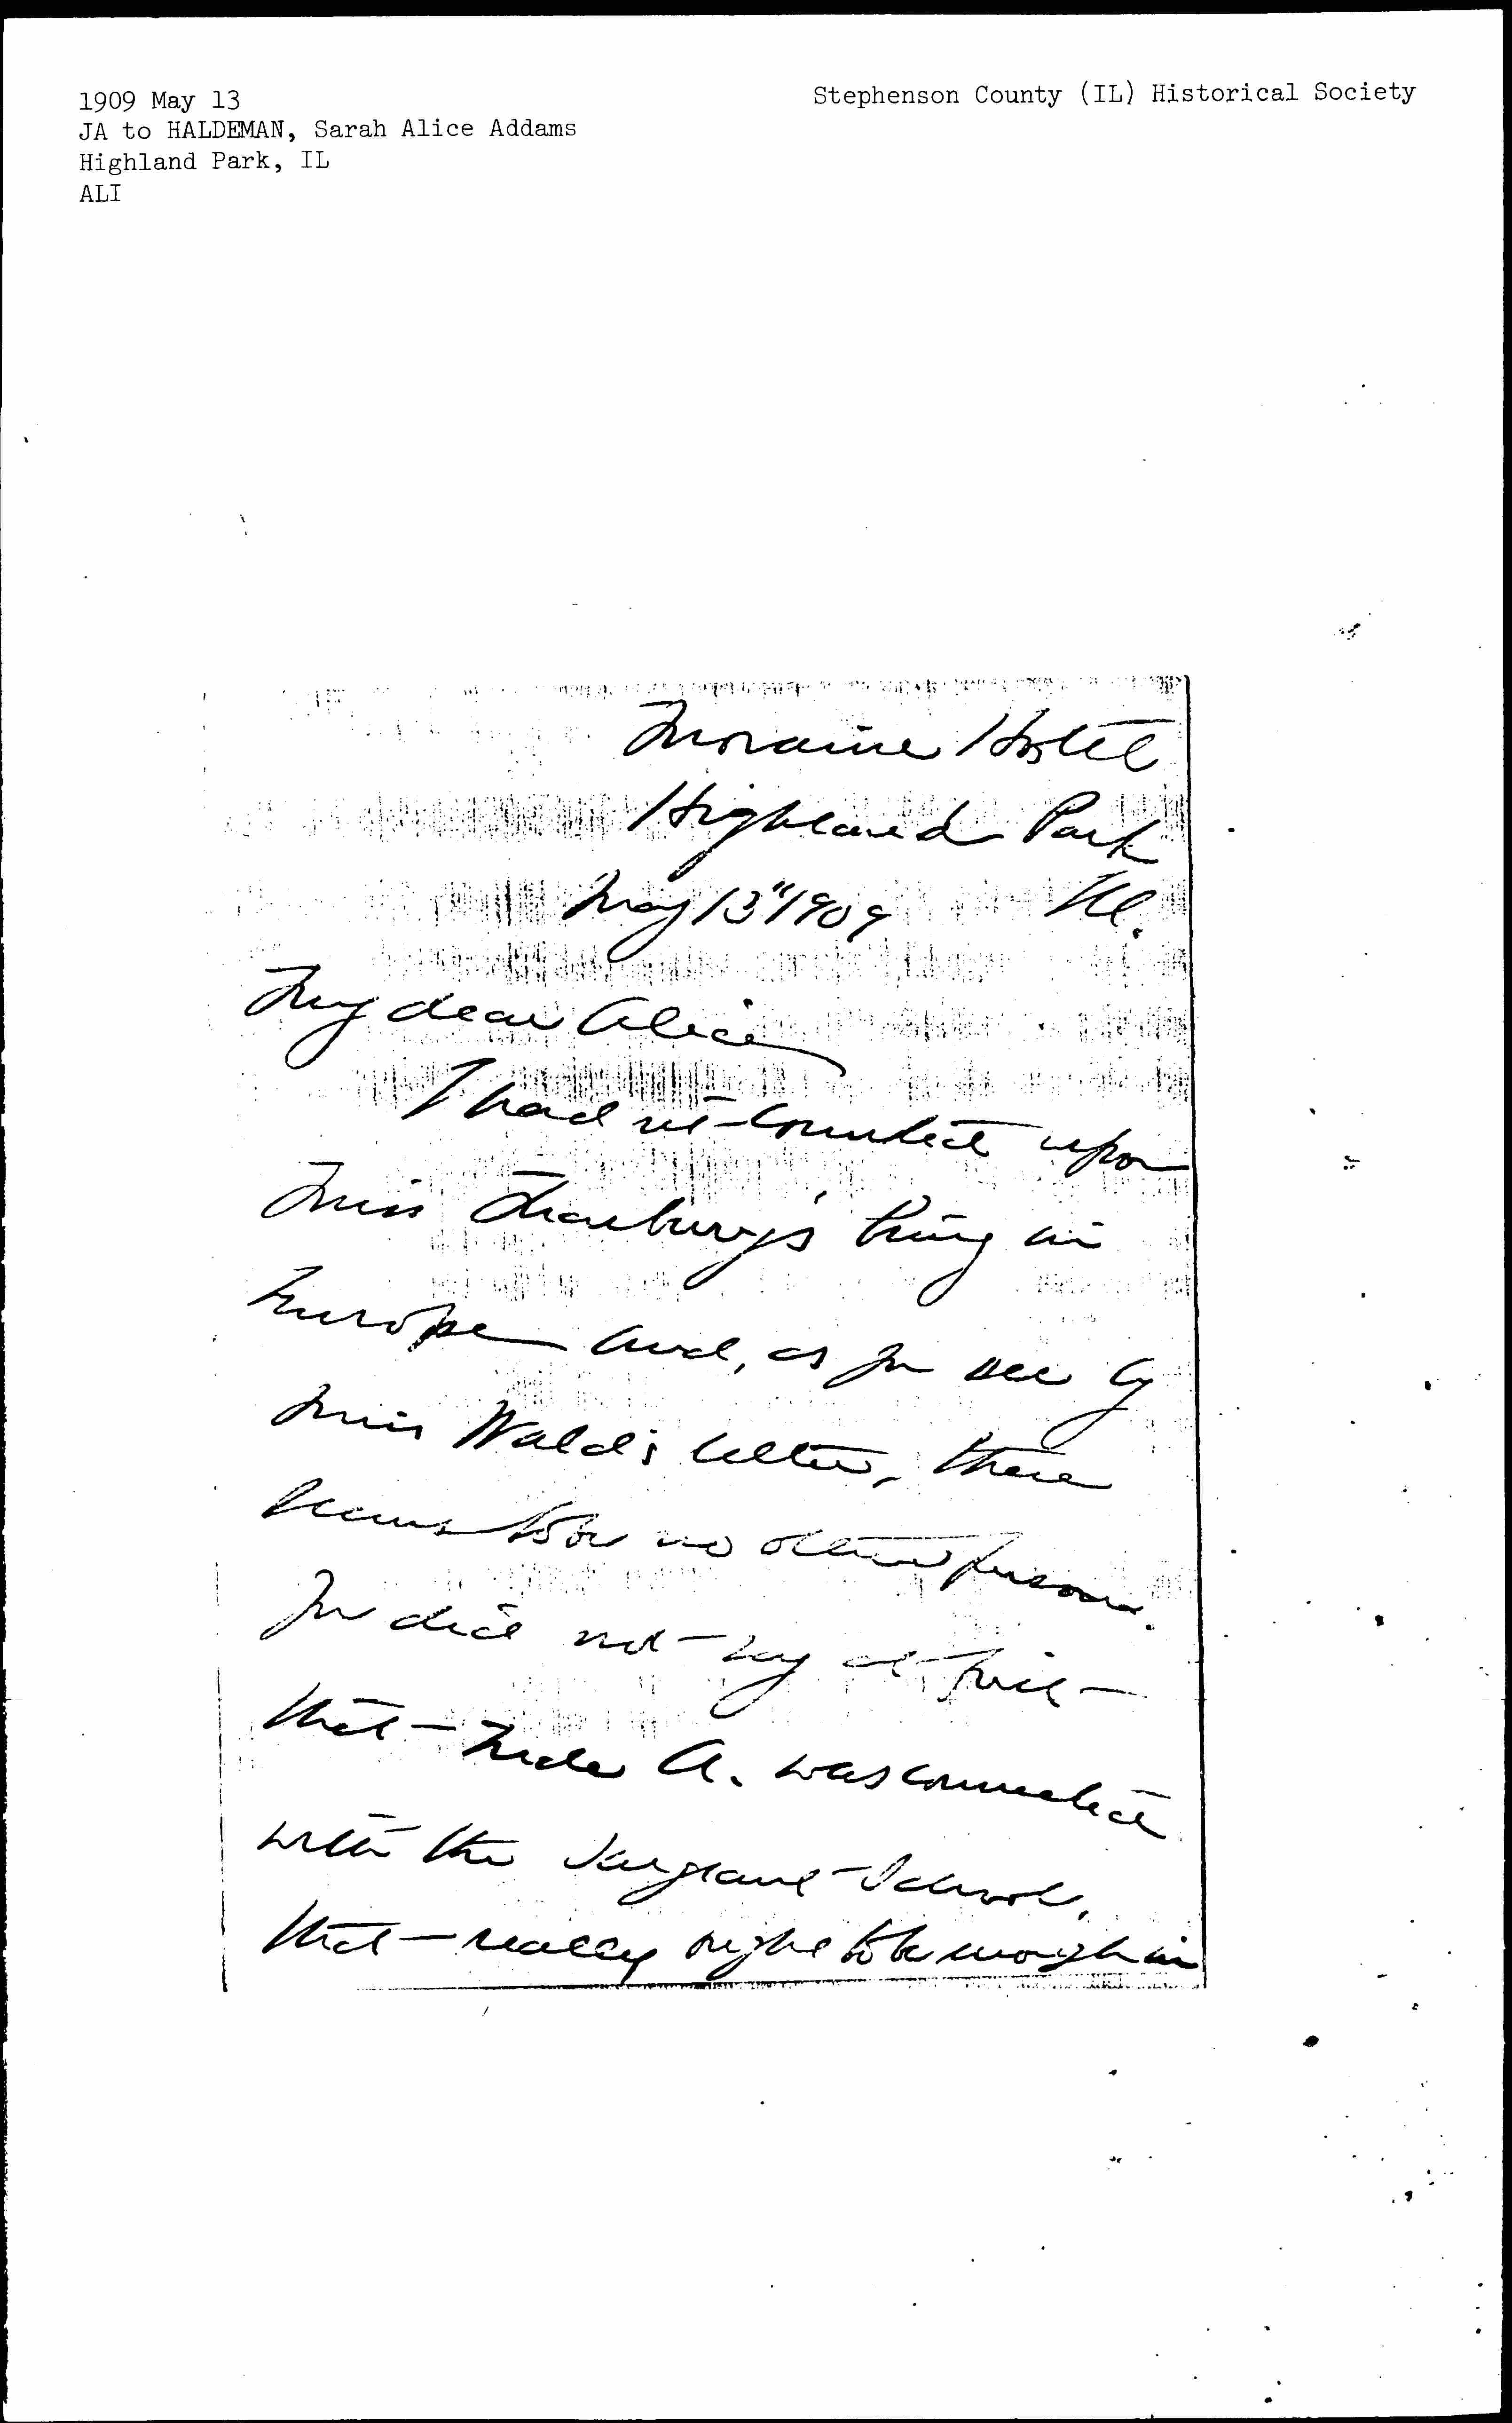 1909 May 13
JA to HALDEMAN, Sarah Alice Addams
Highland Park, IL
ALI
Stephenson County (IL) Historical Society
Moraine Hotel
Highland Park
May 13" 1909 Ill.
My dear Alice
I had not counted upon
Miss being in
Europe and, as you see by
Miss Wald's letter, there
seems to be no other person.
You did not say at first
that A. was connected
with the Sargeant School,
that really ought to be enough in